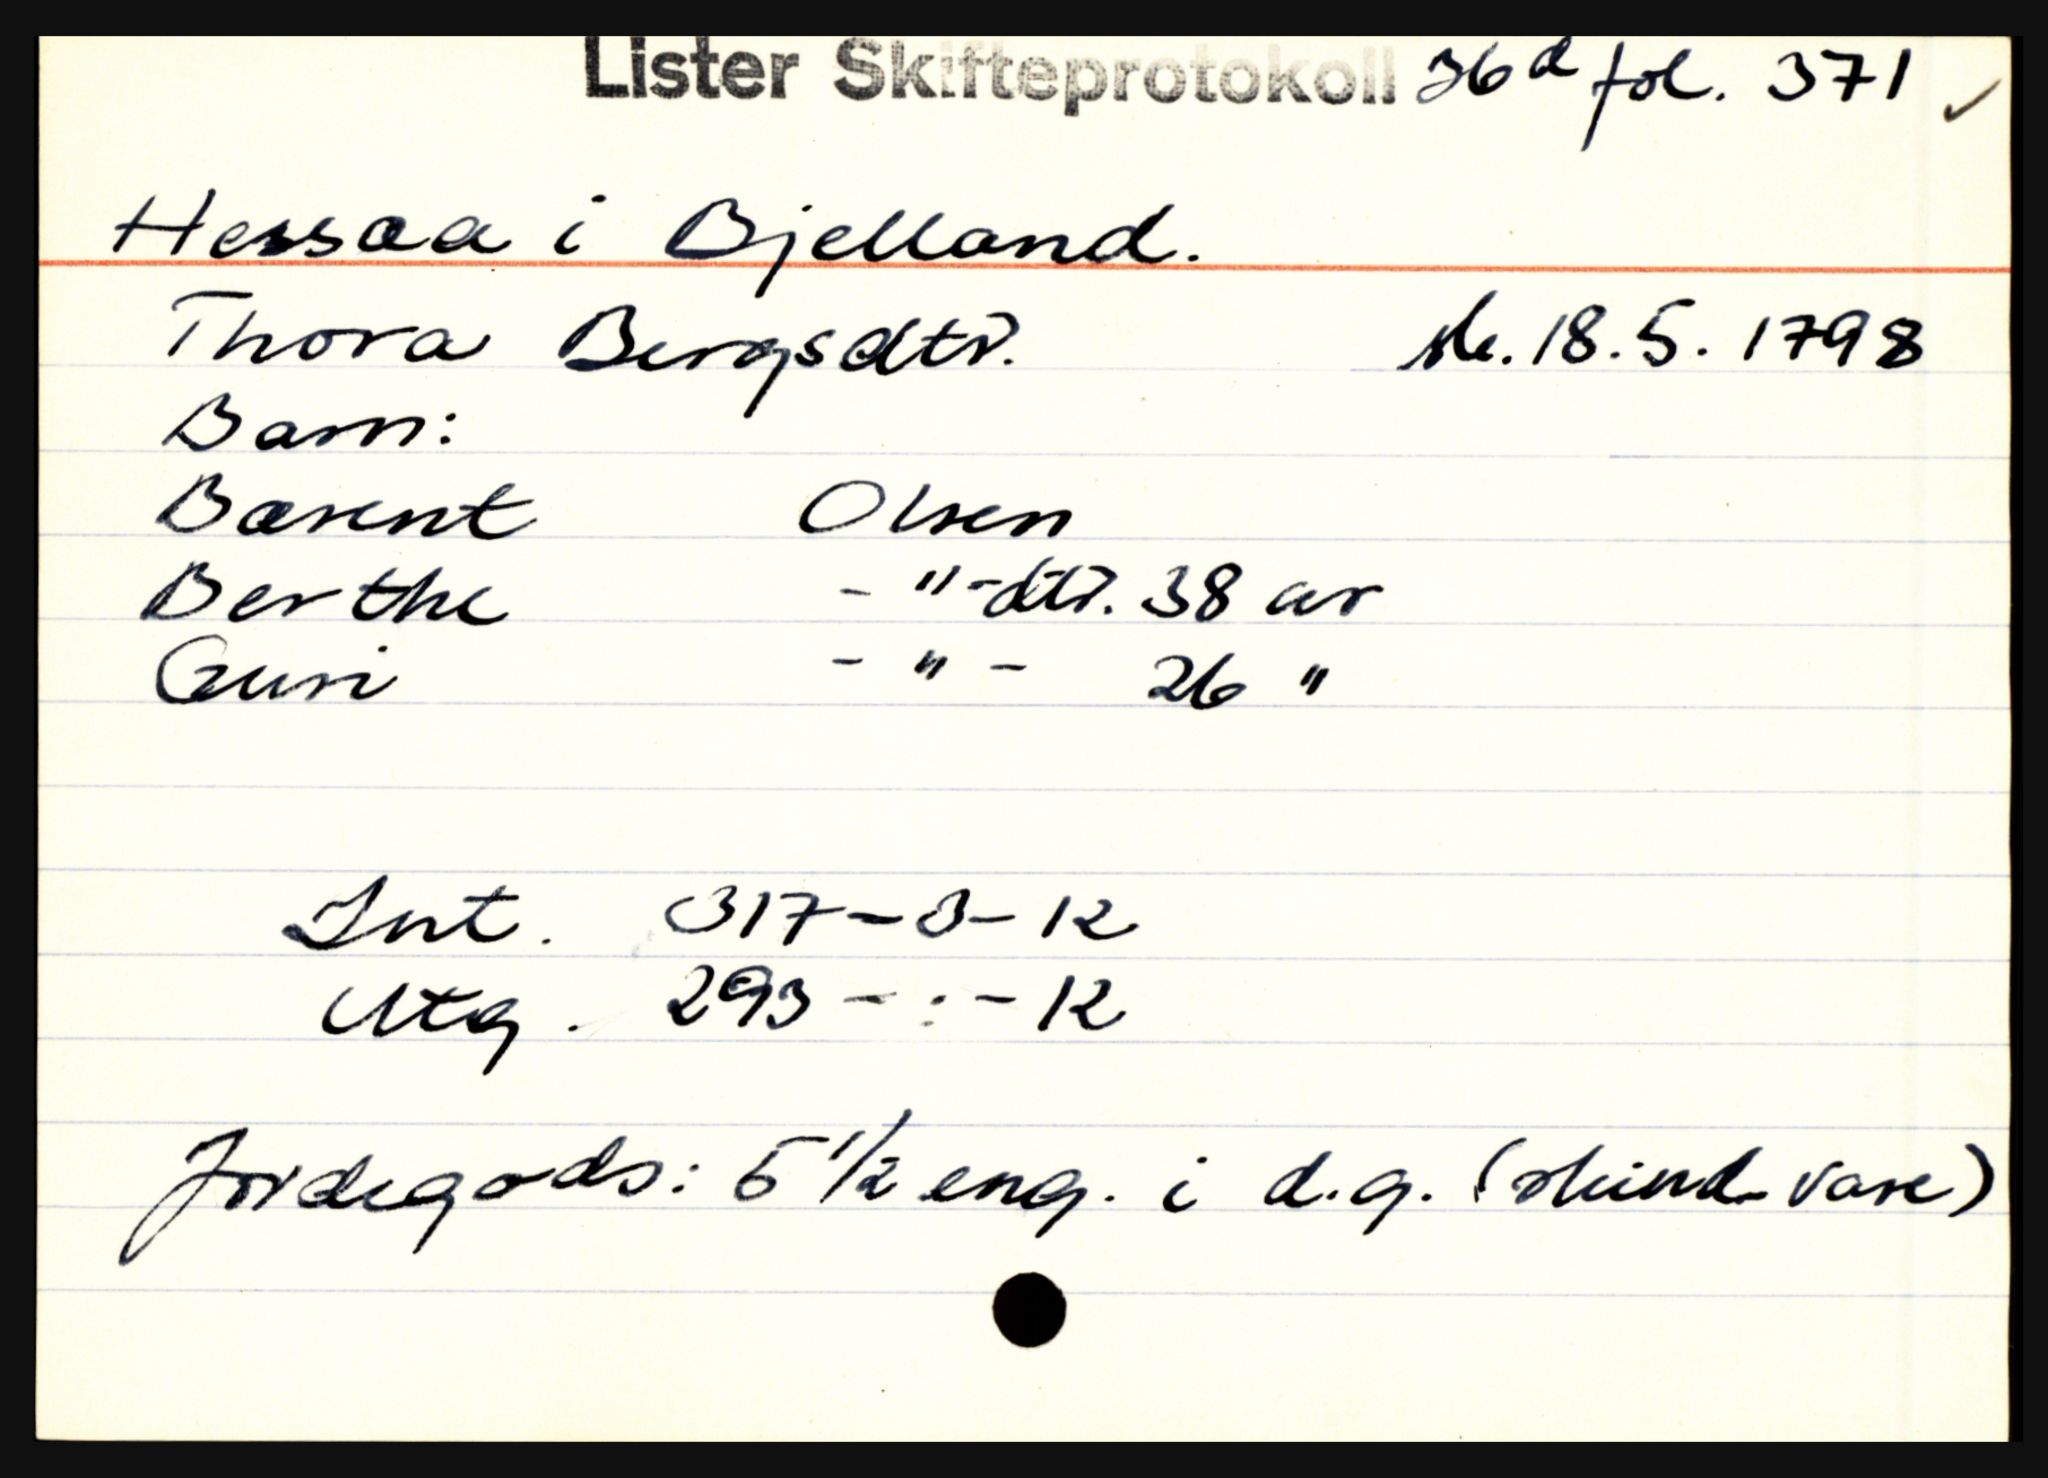 Lister Skifteprotokoll 36d fol. 371 ✓
Hessaa i Bjelland.
Thora Bergsdtr. sk. 18.5.1798
Barn:
Barent Olsen
Berthe - " - dtr. 38 ar
Guri - " - 26 "
Int. 317 - 3 - 12
Utg. 293 - : - 12
Jordegods: 5 1/2 eng. i d.g. (skind-vare)